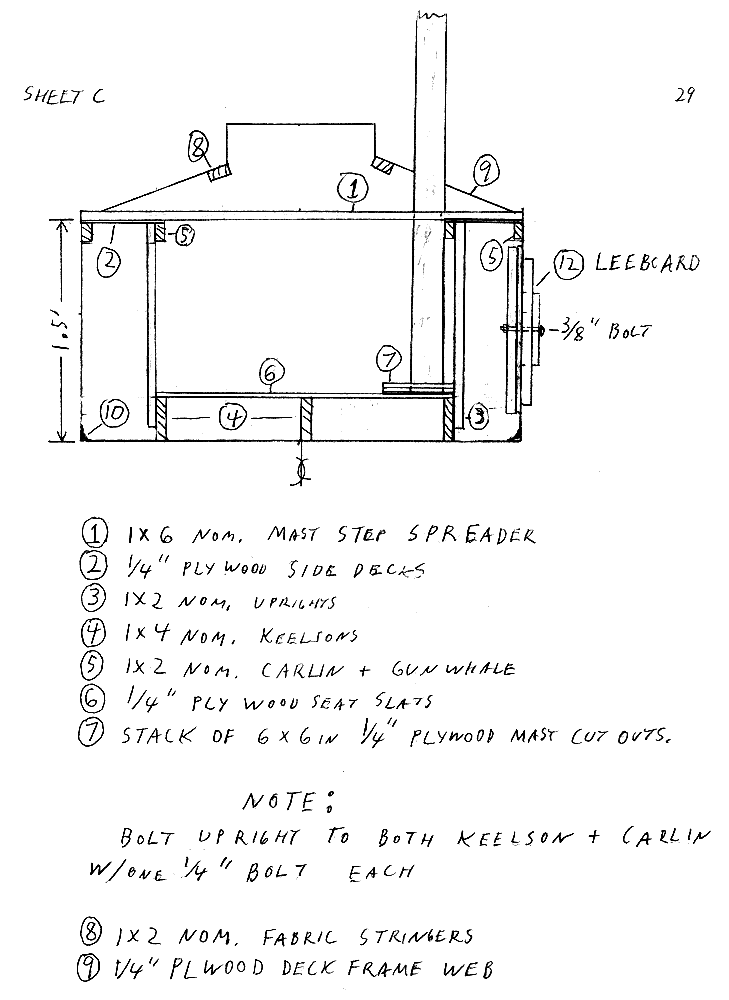 SHEET C 29
8
9
1
5
2
5
12 LEEBOARD
1.5'
3/8" BOLT
7
6
10
4
3
1 1X6 NOM. MAST STEP SPREADER
2 1/4" PLYWOOD SIDE DECKS
3 1X2 NOM. UPRIGHTS
4 1X4 NOM. KEELSONS
5 1X2 NOM. CARLIN + GUNWHALE
6 1/4" PLYWOOD SEAT SLATS
7 STACK OF 6X6 IN 1/4" PLYWOOD MAST CUT OUTS.
NOTE:
BOLT UPRIGHT TO BOTH KEELSON + CARLIN
W/ONE 1/4" BOLT EACH
8 1X2 NOM. FABRIC STRINGERS
9 1/4" PLWOOD DECK FRAME WEB